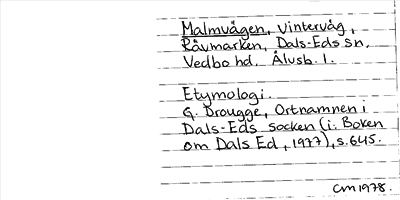 Malmvägen, vinterväg,
Rävmarken, Dals-Eds sn,
Vedbo hd. Älvsb. l.
Etymologi.
G. Drougge, Ortnamnen i
Dals-Eds socken (i: Boken
om Dals Ed, 1977), s. 645.
CM 1978.